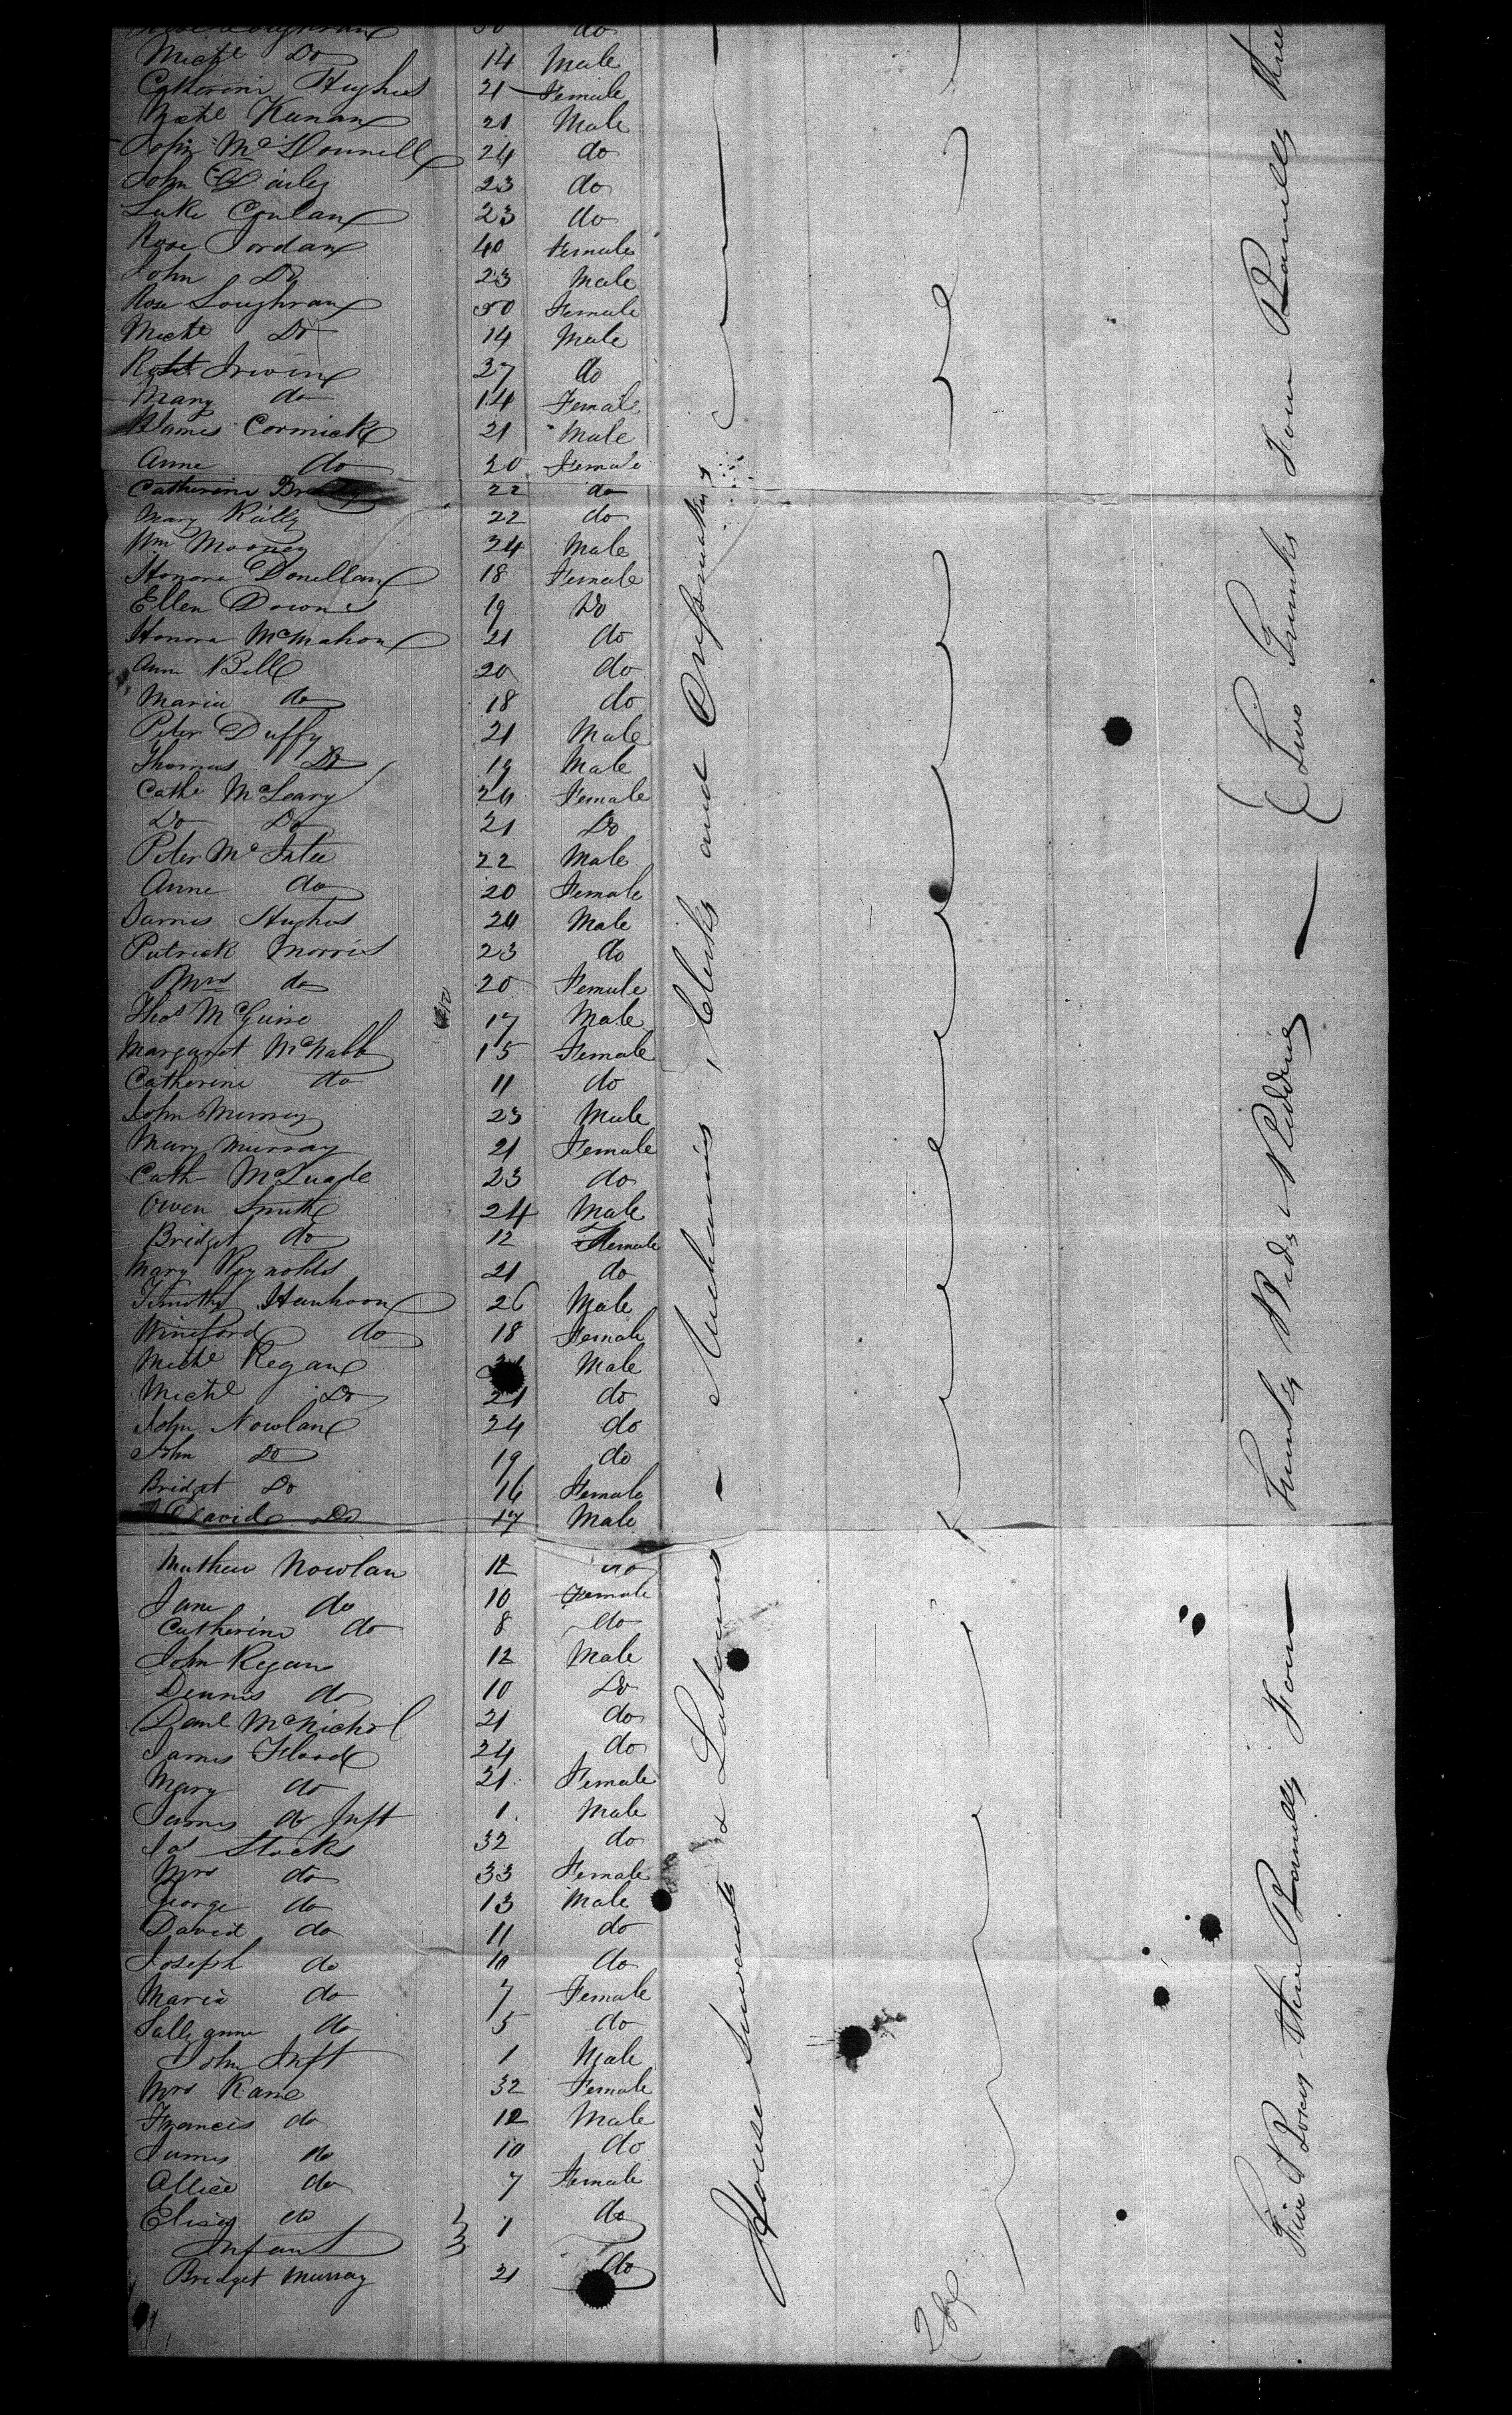 Rose Loughran 50 do
Michl Do 14 Male
Catherine Hughes 21 Female
Michl Kenan 21 Male
John McDonnell 24 do
John 23 do
Luke Conlan 23 do
Rose Jordan 40 Female
John Do 23 Male
Rose Loughran 50 Female
Michl Do 14 Male
Robt Irwin 27 do
Mary do 14 Female
James Cormick 21 Male
Anne do 20 Female
Catherine 22 do
Mary Reilly 22 do
Wm Mooney 24 Male
Honora Donellan 18 Female
Ellen Downes 19 Do
Honora McMahon 21 do
Ann Bell 20 do
Maria do 18 do
Peter Duffy 21 Male
Thomas Do 19 Male
Cathe McLeary 24 Female
Do Do 21 Do
Peter McIntee 22 Male
Anne do 20 Female
James Hughes 24 Male
Patrick Morris 23 do
Mrs do 20 Female
Thos McGuire 17 Male
Margaret McNabb 15 Female
Catherine do 11 do
John Murray 23 Male
Mary Murray 21 Female
Cath McQuade 23 do
Owen Smith 24 Male
Bridget do 12 Female
Mary Reynolds 21 do
Timothy Hanhoon 26 Male
Wineford do 18 Female
Michl Regan Male
Michl Do 21 do
John Nowlan 24 do
John Do 19 do
Bridget Do 16 Female
David Do 17 Male
Mathew Nowlan 12 do
Jane do 10 Female
Catherine do 8 do
John Regan 12 Male
Dennis do 10 Do
Danl McNichol 21 do
James Flood 24 do
Mary do 21 Female
James do Inft 1 Male
Jas Stocks 32 do
Mrs do 33 Female
George do 13 Male
David do 11 do
Joseph do 10 do
Maria do 7 Female
Sallyanne do 5 do
John Inft 1 Male
Mrs Kane 32 Female
Francis do 12 Male
James do 10 do
Allice do 7 Female
Eliza do 1 do
Infant
Bridget Murray 21 do
House Servants & Labourers - Mechanics, Clerks and Dressmakers
Five Boxes three Barrells Four
Twenty Beds & Bedding
Two Trunks Four Barrells three